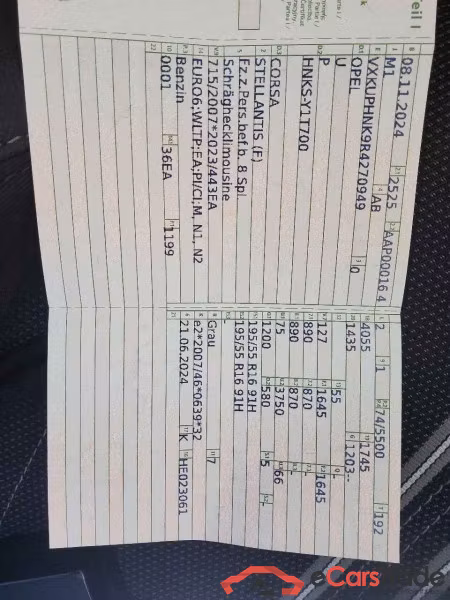 Teil I
08.11.2024
2525
AAP00016 4
M1
AB
VXKUPHNK9R4270949
0
OPEL
U
P
HNKS-Y1T7O0
CORSA
STELLANTIS (F)
Fz.z.Pers.bef.b. 8 Spl.
Schräghecklimousine
715/2007*2023/443EA
EURO6;WLTP;EA;PI/CI;M, N1, N2
Benzin
0001
36EA
1199
2
1
74/5500
192
4055
1745
1435
1203--
55
-
127
1645
1645
890
870
-
890
870
-
75
3750
66
1200
580
5
-
195/55 R16 91H
195/55 R16 91H
-
Grau
7
e2*2007/46*0639*32
21.06.2024
K
HE023061
eCars